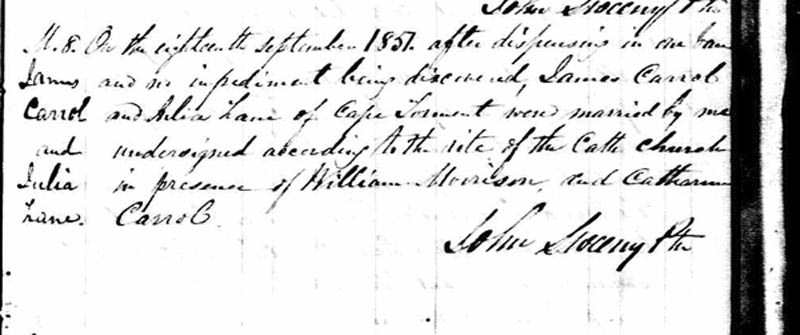 John Sweeny Ptre
M. 8. On the eighteenth september 1857. after dispensing in one bann
James and no impediment being discovered, James Carrol
Carrol and Julia Lane of Cape Torment were married by me
and undersigned according to the rite of the Cath church
Julia in presence of William Morrison, and Catharine
Lane. Carrol
John Sweeny Ptre